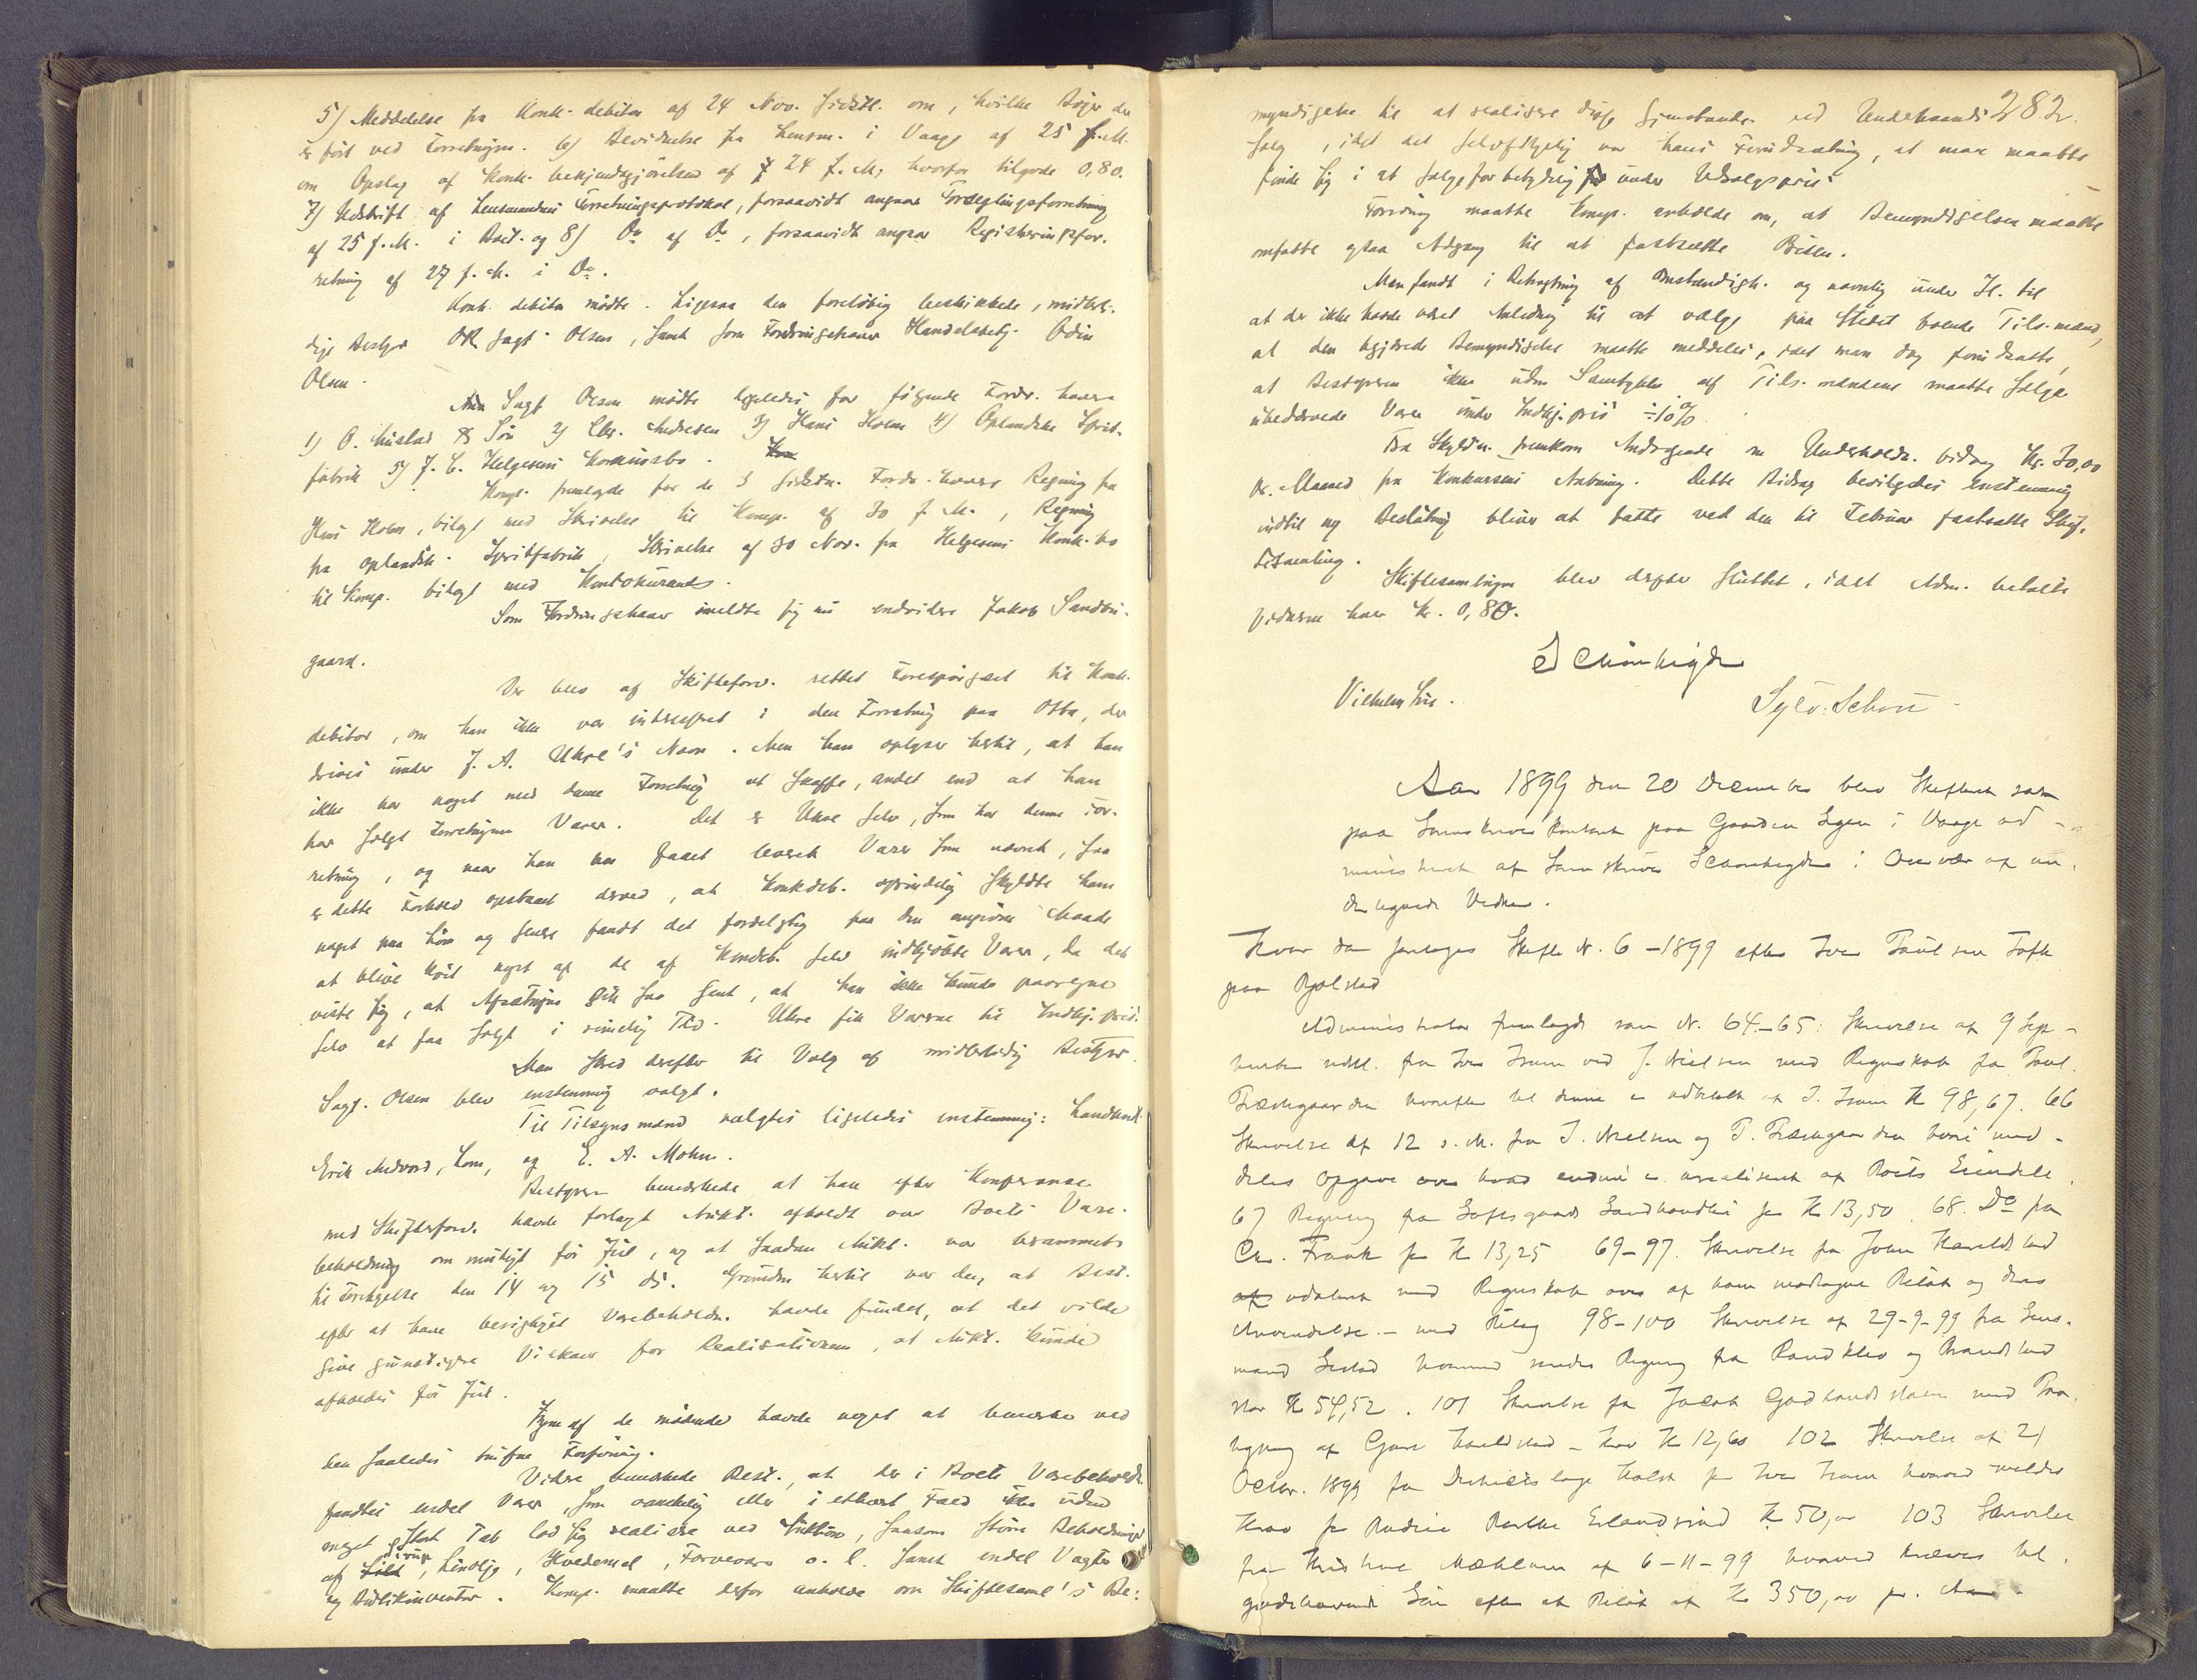 5) Meddelelse fra Konk. debitor af 24 Nov. sidstl. om, hvilke Bøger der
er ført ved Forretningen. 6) Bevidnelse fra Lensm. i Vaage af 25 f.M.
om Opslag af Konk. bekjendtgjørelsen af 24 f.M, hvorfor tilgode 0,80.
7) Udskrift af Lensmandens Forretningsprotokol, forsaavidt angaar Forseglingsforretning
af 25 f.M. i Boet. og 8) Do af Do, forsaavidt angaar Registreringsfor-
retning af 27 f.M. i Do.
Konk. debitor mødte. Ligesaa den foreløbig beskikkede, midlerti-
dige Bestyr. OR Sagf. Olsen, samt som Fordringshaver Handelsbetj. Odin
Olsen.
Sagf Olsen mødte ligeledes for følgende Fordr. havere
1) O. Mustad & Søn 2) Chr. Andresen 3) Hans Holm 4) Oplandske Sprit-
fabrik 5) J. C. Helgesens Konkursbo.
Komp. fremlagde for de 3 sidstn. Fordr. havere Regning fra
Hans Holm, bilagt med Skrivelse til Komp. af 30 f.M., Regning
fra Oplandsk. Spritfabrik, Skrivelse af 30 Nov. fra Helgesens Konk. bo
til Komp. bilagt med Kontokurant.
Som Fordringshaver meldte sig nu endvidere Jakob Sandbu-
gaard.
Der blev af Skifteforv. rettet Forespørgsel til Konk.
debitor, om han ikke var interesseret i den Forretning paa Otta, der
drives under J. A. Ukre's Navn. Men han oplyser hertil, at han
ikke har noget med denne Forretning at skaffe, andet end at han
har solgt Forretningen Varer. Det er Ukre selv, som har denne For-
retning, og naar han har faaet leveret Varer som nævnt, saa
er dette Forhold opstaaet derved, at Konkdeb. oprindelig skyldte ham
noget paa Løn og senere fandt det fordelagtig paa den angivne Maade
at blive kvit noget af de af Konkdeb. selv indkjøbte Varer, da det
viste sig, at Afsætningen gik saa sent, at han ikke kunde paaregne
selv at faa solgt i rimelig Tid. Ukre fik Varerne til Indkj. pris.
Man skred derefter til Valg af midlertidig Bestyr.
Sagf. Olsen blev enstemmig valgt.
Til Tilsynsmænd valgtes ligeledes enstemmig: Landhandl.
Erik Andvord, Lom, og E. A. Mohn.
Bestyreren bemærkede at han efter Konferanse
med Skifteforv. havde forlangt Aukt. afholdt over Boets Vare-
beholdning om muligt før Jul, og at saadan Aukt. var berammet
til Foretagelse den 14 og 15 ds. Grunden hertil var den, at Best.
efter at have besigtiget Varebeholdn. havde fundet, at det vilde
give gunstigere Vilkaar for Realisationen, at Aukt. kunde
afholdes før Jul.
Ingen af de mødende havde noget at bemærke ved
den saaledes trufne Forføining.
Videre bemærkede Best., at der i Boets Varebehold.
fandtes endel Varer, som vanskelig eller i ethvert Fald ikke uden
meget stort Tab lod sig realisere ved Auktion, saasom større Beholdninger
af Sirup, Linolje, Hvedemel, Farvevarer o. l. samt endel Vægter
og Butikinventar. Komp. maatte derfor anholde om Skiftesaml's Be-
282.
myndigelse til at realisere disse Gjenstande ved Underhaands
salg, idet det selvfølgelig var hans Forudsætning, at man maatte
finde sig i at sælge forbetydelig under Udsalgspris
Forøvrig maatte Komp. anholde om, at Bemyndigelsen maatte
omfatte ogsaa Adgang til at fastsætte Prisen.
Man fandt i Betragtning af Omstændigh. og navnlig under H. til
at der ikke havde været Anledning til at vælge paa Stedet boende Tils. mænd,
at den begjærede Bemyndigelse maatte meddeles, idet man dog forudsatte,
at Bestyreren ikke uden Samtykke af Tils. mændene maatte sælge
ubedærvede Varer under Indkj. pris ÷ 10%.
Fra Skyldn. fremkom Andragende om Underholdn. bidrag Kr. 30,00
pr. Maaned fra Konkursens Aabning. Dette Bidrag bevilgedes enstemmig
indtil ny Beslutning bliver at fatte ved den til Februar fastsatte Skif-
tesamling.
Skiftesamlingen blev derpaa sluttet, idet Adm. betalte
Vidnerne hver Kr. 0,80.
Vilhelm
Sylv. Schou
Aar 1899 den 20 December blev Skifteret sat
paa Sorenskriverkontoret paa Gaarden Sygen i Vaage ad-
ministreret af Sorenskriver i Overvær af un-
dertegnede Vidner.
Hvor da foretoges Skifte N. 6 - 1899 efter Iver Paulsen Tofte
paa Bjølstad
Administrator fremlagde som N. 64-65: Skrivelse af 9 Sep-
tember sidstl. fra Iver ved J. Nielsen med Regnskab fra Paul
Prestegaarden hvorefter til denne er udbetalt af I. Kr 98,67. 66
Skrivelse af 12 s. M. fra J. Nielsen og P. Prestegaarden hvori med-
deles Opgave over hvad endnu er urealiseret af Boets Eiendele.
67 Regning fra Landhandleri for Kr 13,50. 68. Do fra
Chr. Frank for Kr 13,25 69-97. Skrivelse fra Johan
udateret med Regnskab over af ham modtagne Beløb og deres
Anvendelse. - med Bilag 98-100 Skrivelse af 29-9-99 fra Lens-
mand hvormed sendes Regning fra Randklev og
stor Kr 54,52. 101 Skrivelse fra Jacob med
af - Krav Kr 12,60 102 Skrivelse af 21
Octbr. 1899 fra Distriktslæge Holst for Iver hvorved meldes
Krav for Kr 50,00 103 Skrivelse
fra af 6-11-99 hvorved kræves til-
godehavende Løn efter et Beløb af Kr 350,00 pr. Aar.